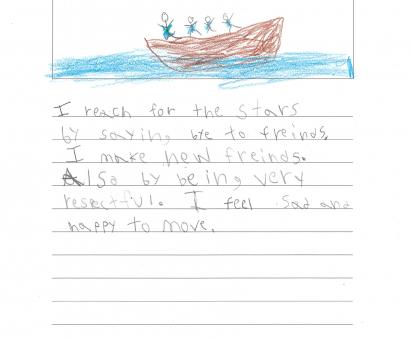 I reach for the stars
by saying bye to freinds.
I make new freinds.
Also by being very
respectful. I feel sad and
happy to move.